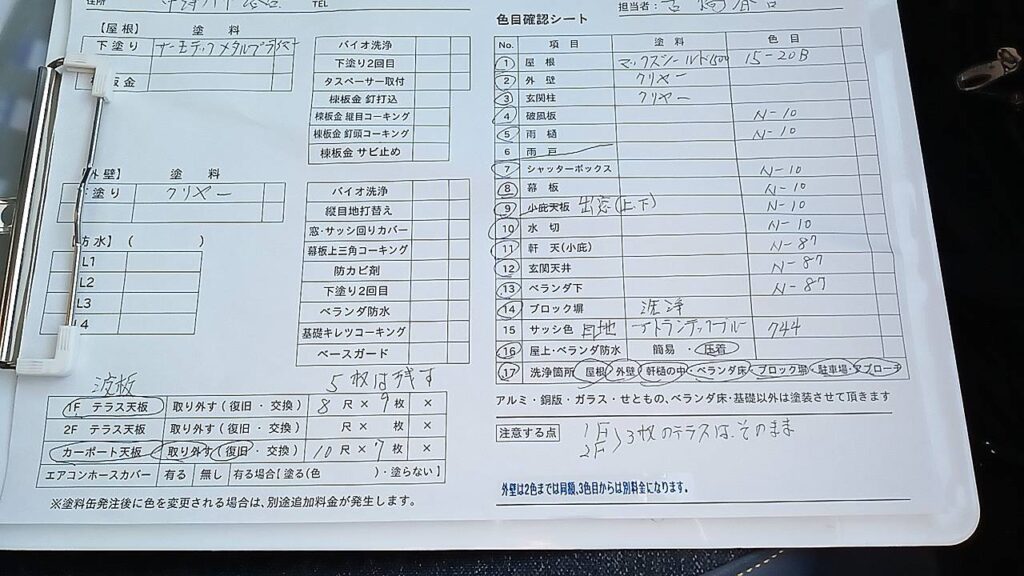 住所
TEL
【屋根】 塗料
下塗り サーモテックメタルプライマー
板金
バイオ洗浄
下塗り2回目
タスペーサー取付
棟板金 釘打込
棟板金 縦目コーキング
棟板金 釘頭コーキング
棟板金 サビ止め
外壁】 塗料
下塗り クリヤー
バイオ洗浄
縦目地打替え
窓・サッシ回りカバー
幕板上三角コーキング
防カビ剤
下塗り2回目
ベランダ防水
基礎キレツコーキング
ベースガード
防水】 ( )
L1
L2
L3
L4
波板 5枚は残す
1F テラス天板 取り外す(復旧・交換) 8 尺× 9 枚 ×
2F テラス天板 取り外す(復旧・交換) 尺× 枚 ×
カーポート天板 取り外す(復旧・交換) 10 尺× 7 枚 ×
エアコンホースカバー 有る 無し 有る場合【塗る(色 )・塗らない】
※塗料缶発注後に色を変更される場合は、別途追加料金が発生します。
担当者:
色目確認シート
No. 項目 塗料 色目
1 屋根 マックスシールド1500 15-20B
2 外壁 クリヤー
3 玄関柱 クリヤー
4 破風板 N-10
5 雨樋 N-10
6 雨戸
7 シャッターボックス N-10
8 幕板 N-10
9 小庇天板 出窓(上、下) N-10
10 水切 N-10
11 軒天(小庇) N-87
12 玄関天井 N-87
13 ベランダ下 N-87
14 ブロック塀 洗浄
15 サッシ色 目地 アトランティックブルー 744
16 屋上・ベランダ防水 簡易・圧着
17 洗浄箇所 屋根・外壁・軒樋の中・ベランダ床・ブロック塀・駐車場・アプローチ
アルミ・銅版・ガラス・せともの、ベランダ床・基礎以外は塗装させて頂きます
注意する点 1F
2F 〉3枚のテラスは、そのまま
外壁は2色までは同額、3色目からは別料金になります。